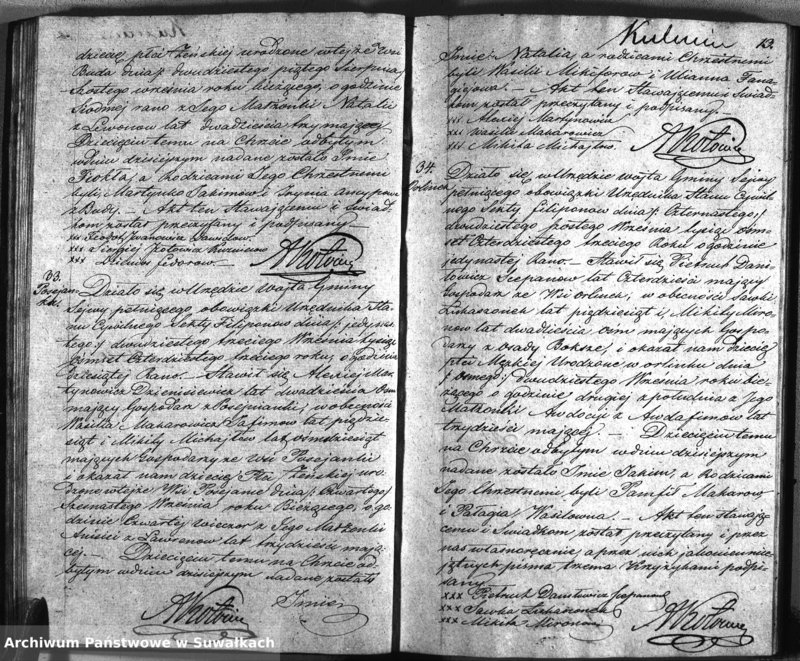 dziecię płci Żeńskiej urodzone wtejże Wsi
Buda dnia dwudziestego piątego Sierpnia
szóstego września roku bieżącego, o godzinie
siódmej rano z Jego Małżonki Natalii
z Lewonow lat dwadzieścia trzy mającej
Dziecięciu temu na Chrzcie odbytym
wdniu dzisiejszym nadane zostało Imie
Fiokla, a Rodzicami Jego Chrzestnemi
byli Martynko Jakimow i
z Budy. — Akt ten Stawającemu i Świad
kom został przeczytany i podpisany —
xxx Sidor Fedorow. —
AKotowicz
33.
Działo się w Urzędzie Wójta Gminy
Sejwy pełniącego obowiązki Urzędnika Sta
nu Cywilnego Sekty Filiponów dnia jedynas
tego / dwudziestego trzeciego Września tysiąc
ośmset Czterdziestego trzeciego roku, o godzinie
dziesiątej Rano. — Stawił się Alexiej Mar
tynowicz Dzienisiewicz lat dwadzieścia
mający Gospodarz z Posejanki, w obecności
Wasila Makarowicza lat pięćdzie
siąt i Mikity Michajłow lat ośmdziesiąt
mających Gospodarzy ze Wsi Posejanki
i okazał nam dziecię Płci Żeńskiej uro
dzone wtejże Wsi Posejance dnia Czwartego
szesnastego Września roku Bieżącego, o go
dzinie Czwartej wieczor z Jego Małżonki
z Lawrenow lat trzydzieści mają
cej. — Dziecięciu temu na Chrzcie od
bytym wdniu dzisiejszym nadane zostało
Imie
AKotowicz
13.
Imie Natalia, a rodzicami Chrzestnemi
byli Wasili Mikiforow i Ulianna
. — Akt ten Stawającemu i Świad
kom został przeczytany i podpisany. —
xxx Alexiej Martynowicz
xxx Wasila Makarowicz
xxx Mikita Michajłow
AKotowicz
34.
Działo się w Urzędzie Wójta Gminy Sejwy
pełniącego obowiązki Urzędnika Stanu Cywil
nego Sekty Filiponów dnia Czternastego
dwudziestego szostego Września tysiąc ośm
set Czterdziestego trzeciego Roku o godzinie
jedynastej Rano. — Stawił się Pietruk Dani
łowicz Szczepanow lat Czterdzieści mający
Gospodarz ze Wsi Orlinek, w obecności Sawki
Łukaszonek lat pięćdziesiąt i Mikity Miro
now lat dwadzieścia ośm mających Gospo
darzy z osady Boksze, i okazał nam dziecię
płci Męzkiej Urodzone w Orlinku dnia
ósmego / Dwudziestego Września roku bie
żącego o godzinie drugiej z południa z Jego
Małżonki Awdocii z lat
trzydzieści mającej. — Dziecięciu temu
na Chrzcie odbytym wdniu dzisiejszym
nadane zostało Imie Jakim, a Rodzicami
Jego Chrzestnemi byli Pamfił Makarow
i Pelagia Wasilowna. — Akt ten stawają
cemu i Świadkom został przeczytany i przez
nas własnoręcznie, a przez nich jako nieumie
jętnych pisma trzema Krzyżykami podpi
sany.
xxx Pietruk Daniłowicz Szczepanow
xxx Sawka Łukaszonek
xxx Mikita Mironow
AKotowicz
Archiwum Państwowe w Suwałkach